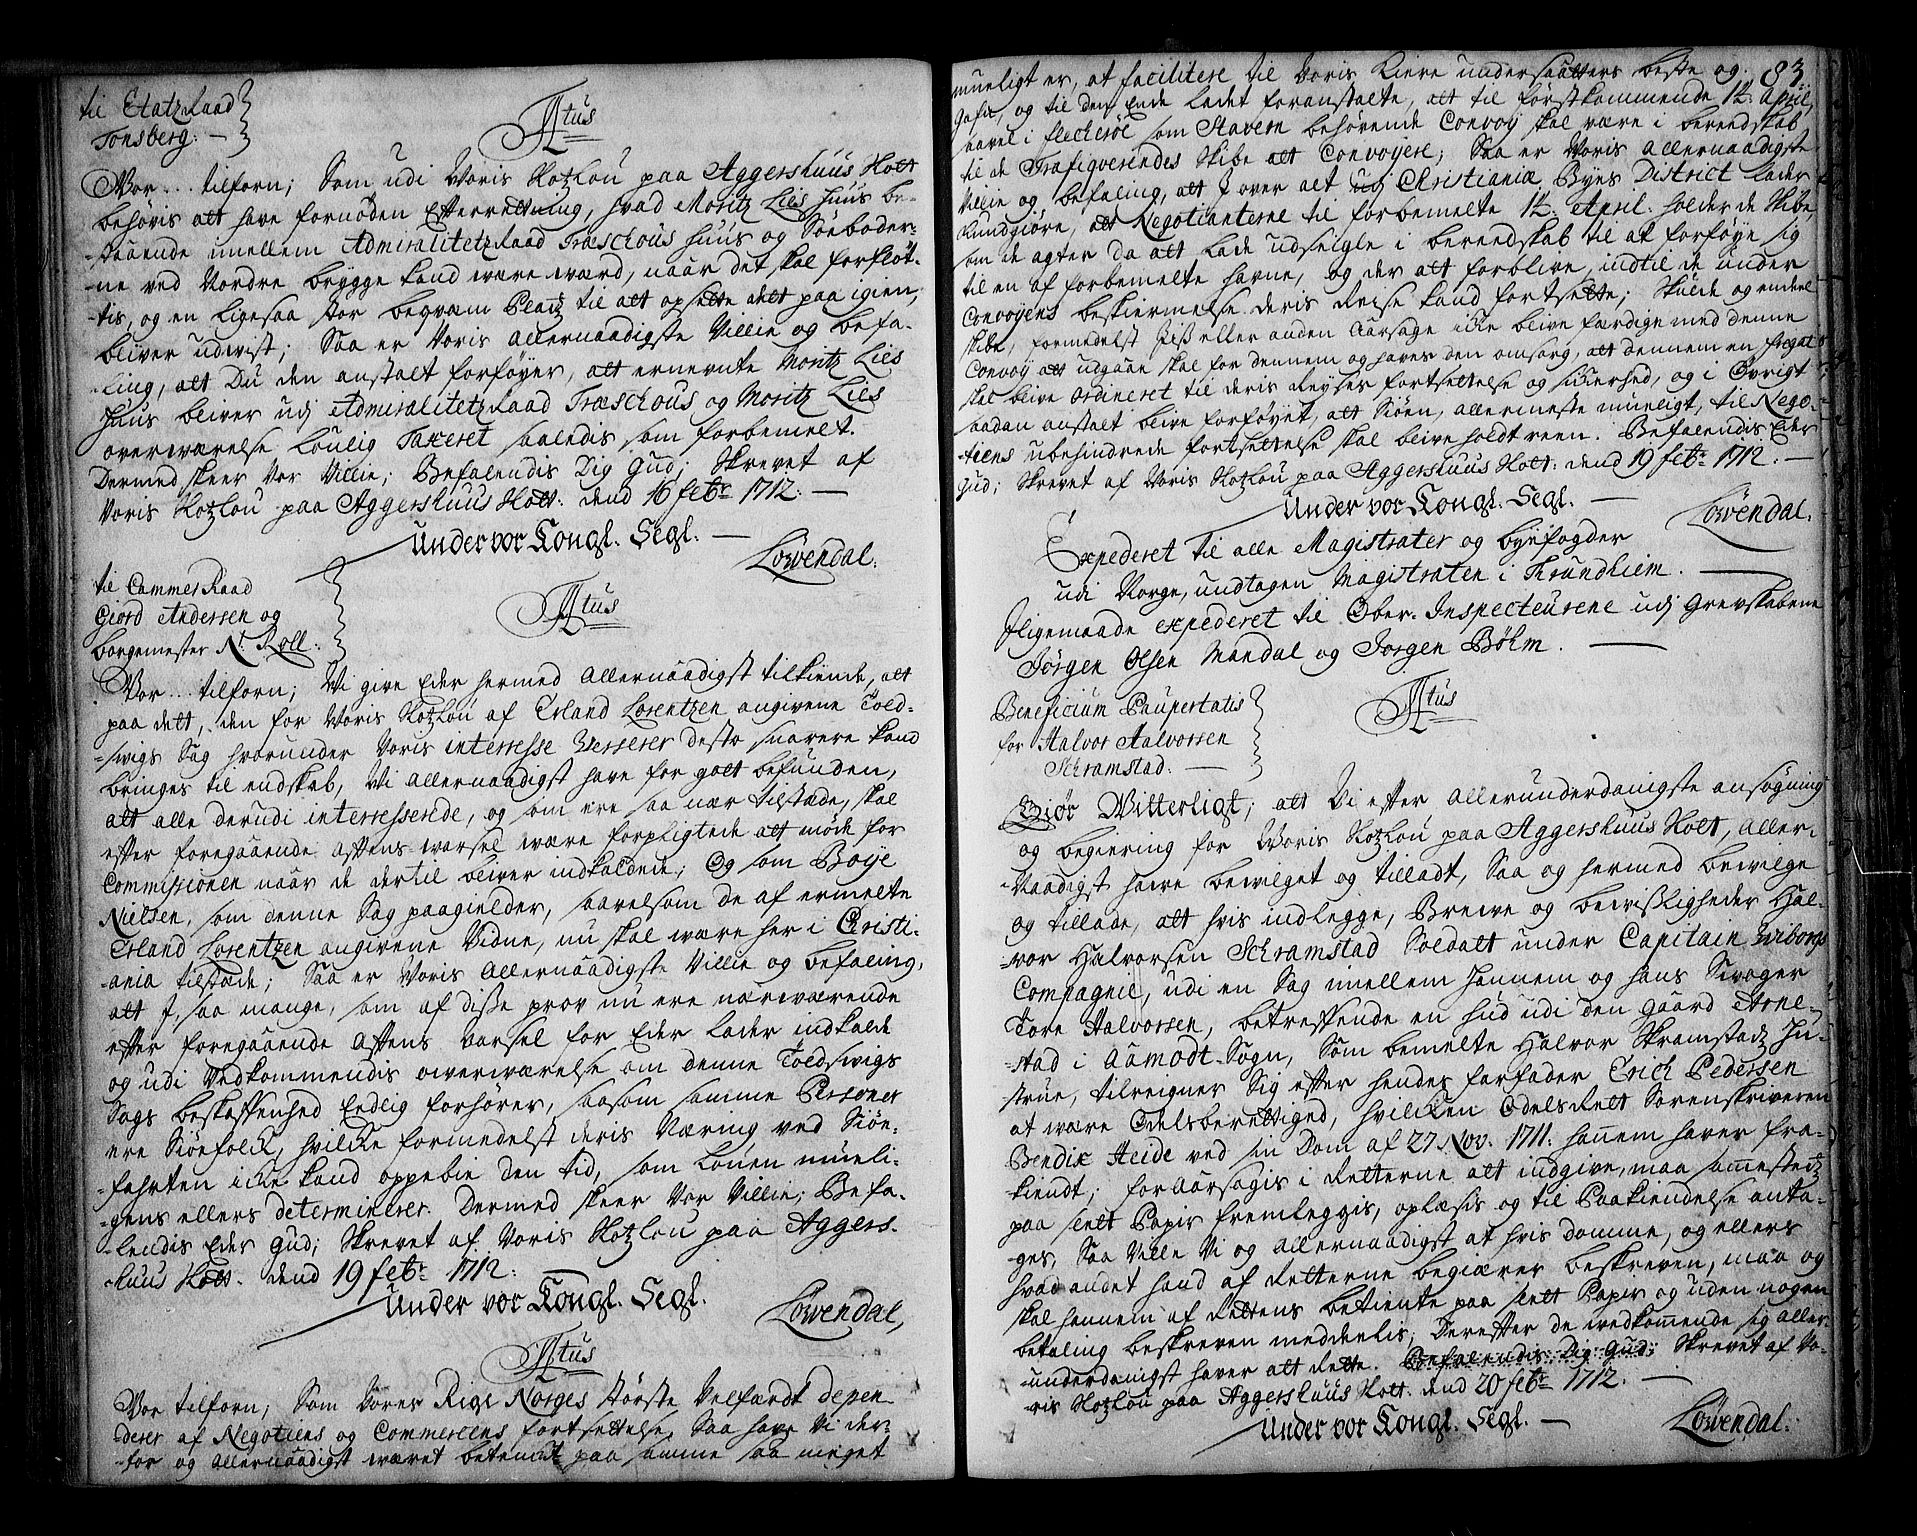 til Etatz Raad
Tonsberg: —
Ftus
Vor... tilforn; Som udi Voris Slotzlou paa Aggershuus Slott
behøris alt have fornøden Efterrettning, hvad Moritz Lies huus be-
-staaende imellem Admiralitetz Raad Træschous huus og Søeboder-
-ne ved Nordre brygge kand være værd, naar det skal forfløt-
-tis, og en ligesaa stor beqvem Platz til alt opsette dett paa igien,
bliver udvist; Saa er Voris allernaadigste Villie og befa-
-ling, alt Du den anstalt forføyer, alt ernevnte Moritz Lies
huus bliver udj Admiralitetz Raad Træschous og Moritz Lies
overværelse Loulig Taxeret saaledis, som forbemelt.
Dermed skeer Vor Villie; Befalendis Dig Gud; Skrevet af
Voris Slotzlou paa Aggershuus Slott: dend 16 febr 1712: —
Under vor Kongl. Segl. —
Løvendal.
til Cammer Raad
Giord Andersen og
borgemester N. Roll:
Ftus
Vor... tilforn; Vi give Eder hermed allernaadigst tilkiende, alt
paa dett, den for Voris Slotzlou af Erland Lorentzen angivene Told-
-svigs Sag hvorunder Voris interresse Verserer desto snarere kand
bringes til endskab, Vi allernaadigst have for gott befunden,
alt alle derudi interresserede, og som ere saa nær tilstæde, skal
efter foregaaende astens varsel være forpligtede alt møde for
Commissionen naar de dertil bliver indkaldede; Og som Boye
Nielsen, som denne Sag paagielder, saavelsom de af ermelte
Erland Lorentzen angivene Vidne, nu skal være her i Christi-
-ania tilstæde; Saa er Voris Allernaadigste Villie og befaling,
alt I, saa mange, som af disse prov nu ere nærværende
efter foregaaende Astens Varsel for Eder lader indkalde
og udi Vedkommendis overværelse om denne Toldsvigs
Sags beskaffenhed Endlig forhører, saasom samme Personer
ere Siøefolck, hvilcke formedelst deris Næring ved Siøe-
-fahrten icke kand oppebie den tid, som Louen mueli-
-gens ellers determinerer. Dermed skeer Vor Villie; Befa-
-lendis Eder Gud; Skrevet af Voris Slotzlou paa Aggers-
-huus Slott. dend 19 febr 1712: —
Under vor Kongl. Segl.
Løvendal,
Ftus
Vor tilforn; Som Vores Rige Norges største Velfærdt depen
-derer af Negotiens og Commerciens fortsettelse, Saa have Vi der-
-for og allernaadigst været betenckt paa samme saa meget
83.
mueligt er, at facilitere til Voris kiere undersaatters beste og
Gafn, og til den Ende ladet foranstalte, alt til førstkommende 12. april,
saavel i fleckerøe som Stavern behørende Convoy skal være i beredskab
til de Trafiqverendes Skibe alt Convoyere; Saa er Voris allernaadigste
Villie og befaling, alt I over alt udj Christiania Byes District lader
kundgiøre, alt Negotianterne til forbemelte 12. April. holder de Skibe,
som de agter da alt lade udseigle i bereedskab til at forføye sig
til en af forbemelte havne, og der alt forblive, indtil de under
Convoyens beskiermelse deris Reise kand fortsette; Skulde og endeel
skibe, formedelst Jiss eller anden Aarsage icke blive færdige med denne
Convoy alt udgaae skal for dennem og haves den omsorg, alt dennem en fregat
skal blive ordineret til deris Reyses fortsettelse og sikerhed, og i Øvrigt
saadan anstalt blive forføyet, alt Siøen, allermeste mueligt, til Nego-
-tiens ubehindrede fortsettelse skal blive holdt reen. Befalendis Eder
Gud; Skrevet af Voris Slotzlou paa Aggershuus Slott: dend 19 febr 1712: —
Under vor Kongl. Segl. —
Løvendal.
Expederet til alle Magistrater og byefogder
udi Norge, undtagen Magistraten i Trundhiem. —
Iligemaade expederet til Ober-Inspecteurene udj Grevskabene
Jørgen Olsen Mandal og Jorgen Bøhm. —
Beneficium Paupertatis
for Halvor Halvorsen
Schramstad. —
Ftus
Giør Vitterligt; alt Vi efter allerunderdanigste ansøgning
og begiering for Voris Slotzlou paa Aggershuus Slott, Aller-
-naadigst have bevilget og tilladt, Saa og hermed bevilge
og tillade, alt hvis indlegge, Breve og bevisligheder Hal-
-vor Halvorsen Schramstad Soldatt under Capitain Wiborgs
Compagnie, udi en Sag imellem hannem og hans Svoger
Tore Halvorsen, betreffende en hud udi den gaard Arne-
-stad i Aamodt-Sogn, Som bemelte Halvor Skramstads Hu-
-strue, tilreigner Sig efter hendes farfader Erich Pedersen
at være Odelsberettiged, hvilcken Odelsrett Sorenskriveren
Bendix Heide ved sin Dom af 27 Nov. 1711: hannem haver fra-
-kiendt; foraarsagis i Retterne alt indgive, maa sammestedz
paa slett Papir fremleggis, oplæsis og til Paakiendelse anta-
-ges, Saa Ville Vi og allernaadigst at hvis domme, og ellers
hvad andet hand af Retterne begiærer beskreven, maa og
skal hannem af Rettens betiente paa slett Papir og uden nogen
betaling beskreven meddeelis; Derefter de vedkommende sig aller-
-underdanigst haver alt rette. Befalendis Dig Gud; Skrevet af Vo-
-ris Slotzlou paa Aggershuus Slott. dend 20 febr 1712. —
Under vor Kongl. Segl. —
Løvendal.